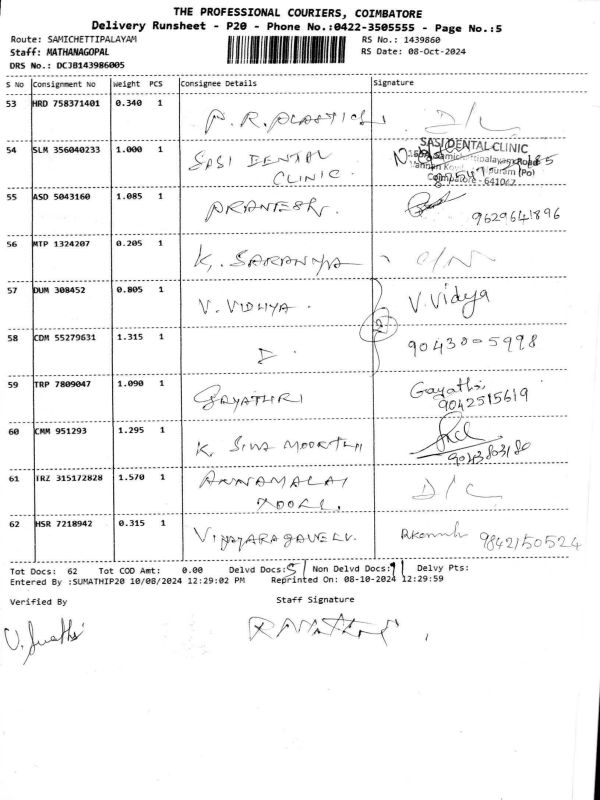 THE PROFESSIONAL COURIERS, COIMBATORE
Delivery Runsheet - P20 - Phone No.:0422-3505555 - Page No.:5
Route: SAMICHETTIPALAYAM RS No.: 1439860
Staff: MATHANAGOPAL RS Date: 08-Oct-2024
DRS No.: DCJB143986005
S No Consignment No Weight PCS Consignee Details Signature
53 HRD 758371401 0.340 1 P.R. PLASTICS D/L
54 SLM 356040233 1.000 1 SASI DENTAL CLINIC.
SASI DENTAL CLINIC
Coimbatore - 641047
55 ASD 5043160 1.085 1 PRANTESH. 9629641896
56 MTP 1324207 0.205 1 K. SARANYA
57 DUM 308452 0.805 1 V. VIDHYA. V. Vidya
2
58 CDM 55279631 1.315 1 D. 9043005998
59 TRP 7809047 1.090 1 GAYATHRI Gayathri
9042515619
60 CMM 951293 1.295 1 K. SIVA MOORTHI
9043803180
61 TRZ 315172828 1.570 1 ANNAMALAI TOOLS. D/C
62 HSR 7218942 0.315 1 VIJAYARAGAVELU. 9842150524
Tot Docs: 62 Tot COD Amt: 0.00 Delvd Docs: 51 Non Delvd Docs: 11 Delvy Pts:
Entered By :SUMATHIP20 10/08/2024 12:29:02 PM Reprinted On: 08-10-2024 12:29:59
Verified By Staff Signature